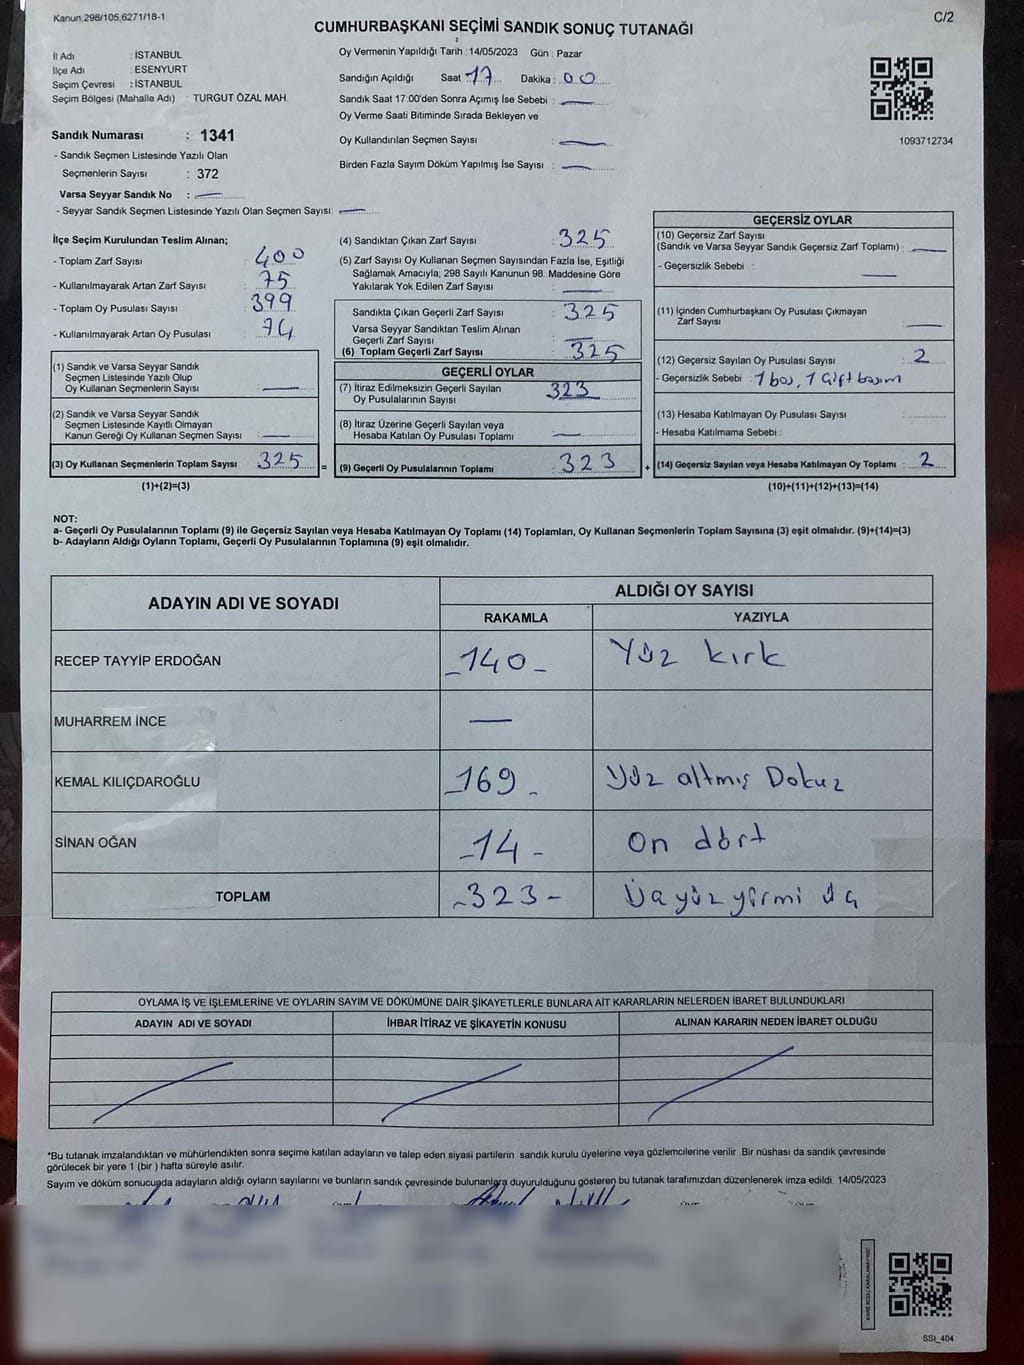 Kanun,298/105,6271/18-1
C/2
CUMHURBAŞKANI SEÇİMİ SANDIK SONUÇ TUTANAĞI
İl Adı : İSTANBUL
İlçe Adı : ESENYURT
Seçim Çevresi : İSTANBUL
Seçim Bölgesi (Mahalle Adı) : TURGUT ÖZAL MAH.
Sandık Numarası : 1341
- Sandık Seçmen Listesinde Yazılı Olan
Seçmenlerin Sayısı : 372
Varsa Seyyar Sandık No :
- Seyyar Sandık Seçmen Listesinde Yazılı Olan Seçmen Sayısı:
Oy Vermenin Yapıldığı Tarih : 14/05/2023 Gün : Pazar
Sandığın Açıldığı Saat : 17 Dakika : 00
Sandık Saat 17:00'den Sonra Açımış İse Sebebi :
Oy Verme Saati Bitiminde Sırada Bekleyen ve
Oy Kullandırılan Seçmen Sayısı :
Birden Fazla Sayım Döküm Yapılmış İse Sayısı :
1093712734
İlçe Seçim Kurulundan Teslim Alınan;
- Toplam Zarf Sayısı : 400
- Kullanılmayarak Artan Zarf Sayısı : 75
- Toplam Oy Pusulası Sayısı : 399
- Kullanılmayarak Artan Oy Pusulası : 74
(1) Sandık ve Varsa Seyyar Sandık
Seçmen Listesinde Yazılı Olup
Oy Kullanan Seçmenlerin Sayısı :
(2) Sandık ve Varsa Seyyar Sandık
Seçmen Listesinde Kayıtlı Olmayan
Kanun Gereği Oy Kullanan Seçmen Sayısı :
(3) Oy Kullanan Seçmenlerin Toplam Sayısı : 325 =
(1)+(2)=(3)
(4) Sandıktan Çıkan Zarf Sayısı : 325
(5) Zarf Sayısı Oy Kullanan Seçmen Sayısından Fazla İse, Eşitliği
Sağlamak Amacıyla; 298 Sayılı Kanunun 98. Maddesine Göre
Yakılarak Yok Edilen Zarf Sayısı :
Sandıkta Çıkan Geçerli Zarf Sayısı : 325
Varsa Seyyar Sandıktan Teslim Alınan
Geçerli Zarf Sayısı :
(6) Toplam Geçerli Zarf Sayısı : 325
GEÇERLİ OYLAR
(7) İtiraz Edilmeksizin Geçerli Sayılan
Oy Pusulalarının Sayısı : 323
(8) İtiraz Üzerine Geçerli Sayılan veya
Hesaba Katılan Oy Pusulası Toplamı :
(9) Geçerli Oy Pusulalarının Toplamı : 323 +
GEÇERSİZ OYLAR
(10) Geçersiz Zarf Sayısı
(Sandık ve Varsa Seyyar Sandık Geçersiz Zarf Toplamı) :
- Geçersizlik Sebebi :
(11) İçinden Cumhurbaşkanı Oy Pusulası Çıkmayan
Zarf Sayısı :
(12) Geçersiz Sayılan Oy Pusulası Sayısı : 2
- Geçersizlik Sebebi : 1 boş, 1 Çift basım
(13) Hesaba Katılmayan Oy Pusulası Sayısı :
- Hesaba Katılmama Sebebi :
(14) Geçersiz Sayılan veya Hesaba Katılmayan Oy Toplamı : 2
(10)+(11)+(12)+(13)=(14)
NOT:
a- Geçerli Oy Pusulalarının Toplamı (9) ile Geçersiz Sayılan veya Hesaba Katılmayan Oy Toplamı (14) Toplamları, Oy Kullanan Seçmenlerin Toplam Sayısına (3) eşit olmalıdır. (9)+(14)=(3)
b- Adayların Aldığı Oyların Toplamı, Geçerli Oy Pusulalarının Toplamına (9) eşit olmalıdır.
ADAYIN ADI VE SOYADI
ALDIĞI OY SAYISI
RAKAMLA YAZIYLA
RECEP TAYYİP ERDOĞAN -140- Yüz kırk
MUHARREM İNCE —
KEMAL KILIÇDAROĞLU -169- Yüz altmış Dokuz
SİNAN OĞAN -14- On dört
TOPLAM -323- Üçyüzyirmi üç
OYLAMA İŞ VE İŞLEMLERİNE VE OYLARIN SAYIM VE DÖKÜMÜNE DAİR ŞİKAYETLERLE BUNLARA AİT KARARLARIN NELERDEN İBARET BULUNDUKLARI
ADAYIN ADI VE SOYADI İHBAR İTİRAZ VE ŞİKAYETİN KONUSU ALINAN KARARIN NEDEN İBARET OLDUĞU
*Bu tutanak imzalandıktan ve mühürlendikten sonra seçime katılan adayların ve talep eden siyasi partilerin sandık kurulu üyelerine veya gözlemcilerine verilir .Bir nüshası da sandık çevresinde
görülecek bir yere 1 (bir ) hafta süreyle asılır.
Sayım ve döküm sonucunda adayların aldığı oyların sayılarını ve bunların sandık çevresinde bulunanlara duyurulduğunu gösteren bu tutanak tarafımızdan düzenlenerek imza edildi. 14/05/2023
KARE KODU KARALAMAYINIZ!
SSI_404